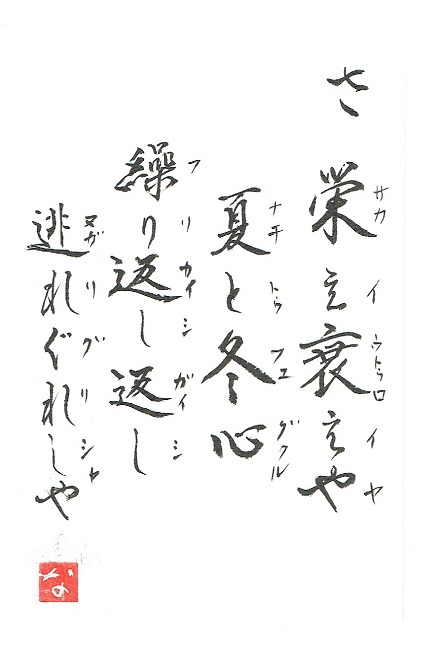 さ 栄え衰えや
サカイウトゥロイヤ
夏と冬心
ナチトゥフユグクル
繰り返し返し
フリカイシガイシ
逃れぐれしや
ヌガリグリシャ
な